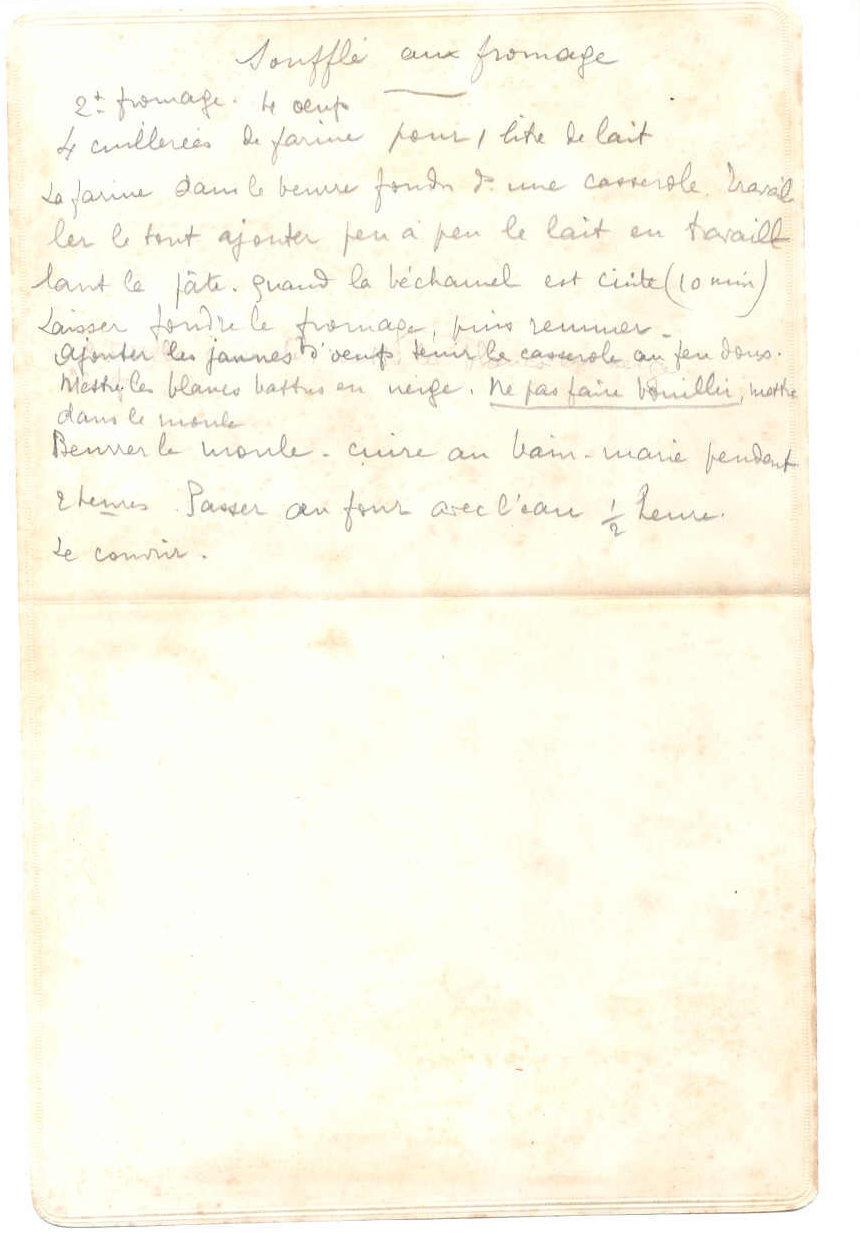 Soufflé aux fromage
fromage. 4 oeufs
4 cuillerées de farine pour 1 litre de lait
La farine dans le beurre fondu ds une casserole. Travail
ler le tout ajouter peu à peu le lait en travaill
lant la pâte. quand la béchamel est cuite (10 min)
Laisser fondre le fromage, puis remuer.
Ajouter les jaunes d'oeufs tenir la casserole au feu doux.
Mettre les blancs battus en neige. Ne pas faire bouillir, mettre
dans le moule
Beurrer le moule. cuire au bain-marie pendant
2 heures. Passer au four avec l'eau ½ heure.
Le couvrir.